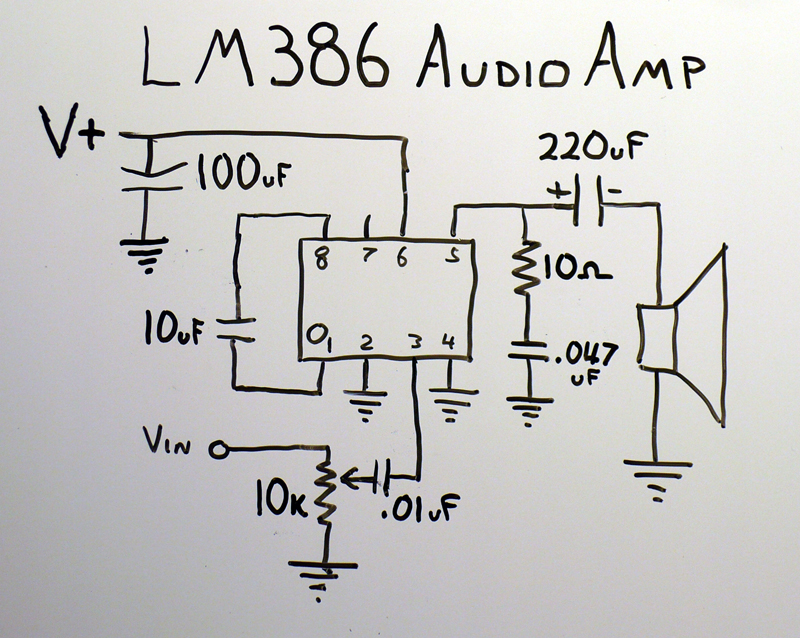 LM386 AUDIO AMP
V+
100uF
220uF
+ -
8 7 6 5
10Ω
10uF
1 2 3 4
.047
uF
VIN
10K
.01uF